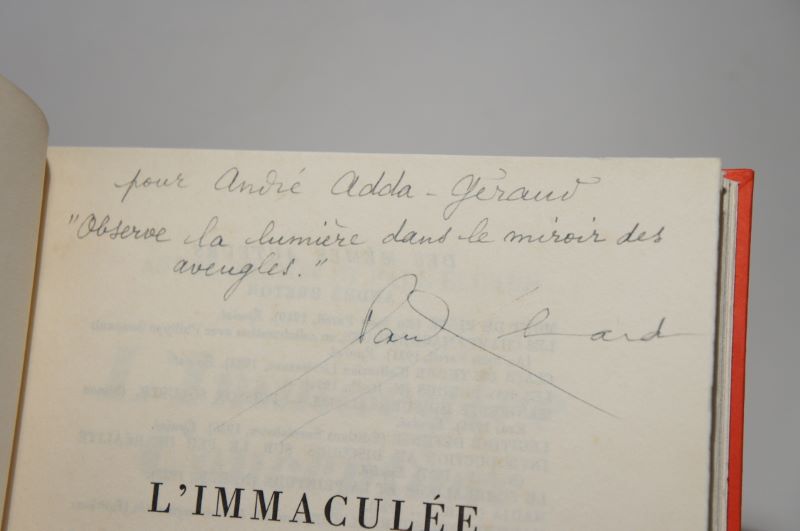 pour André Adda-Géraud
"Observe la lumière dans le miroir des
aveugles."
Paul Eluard
L'IMMACULÉE